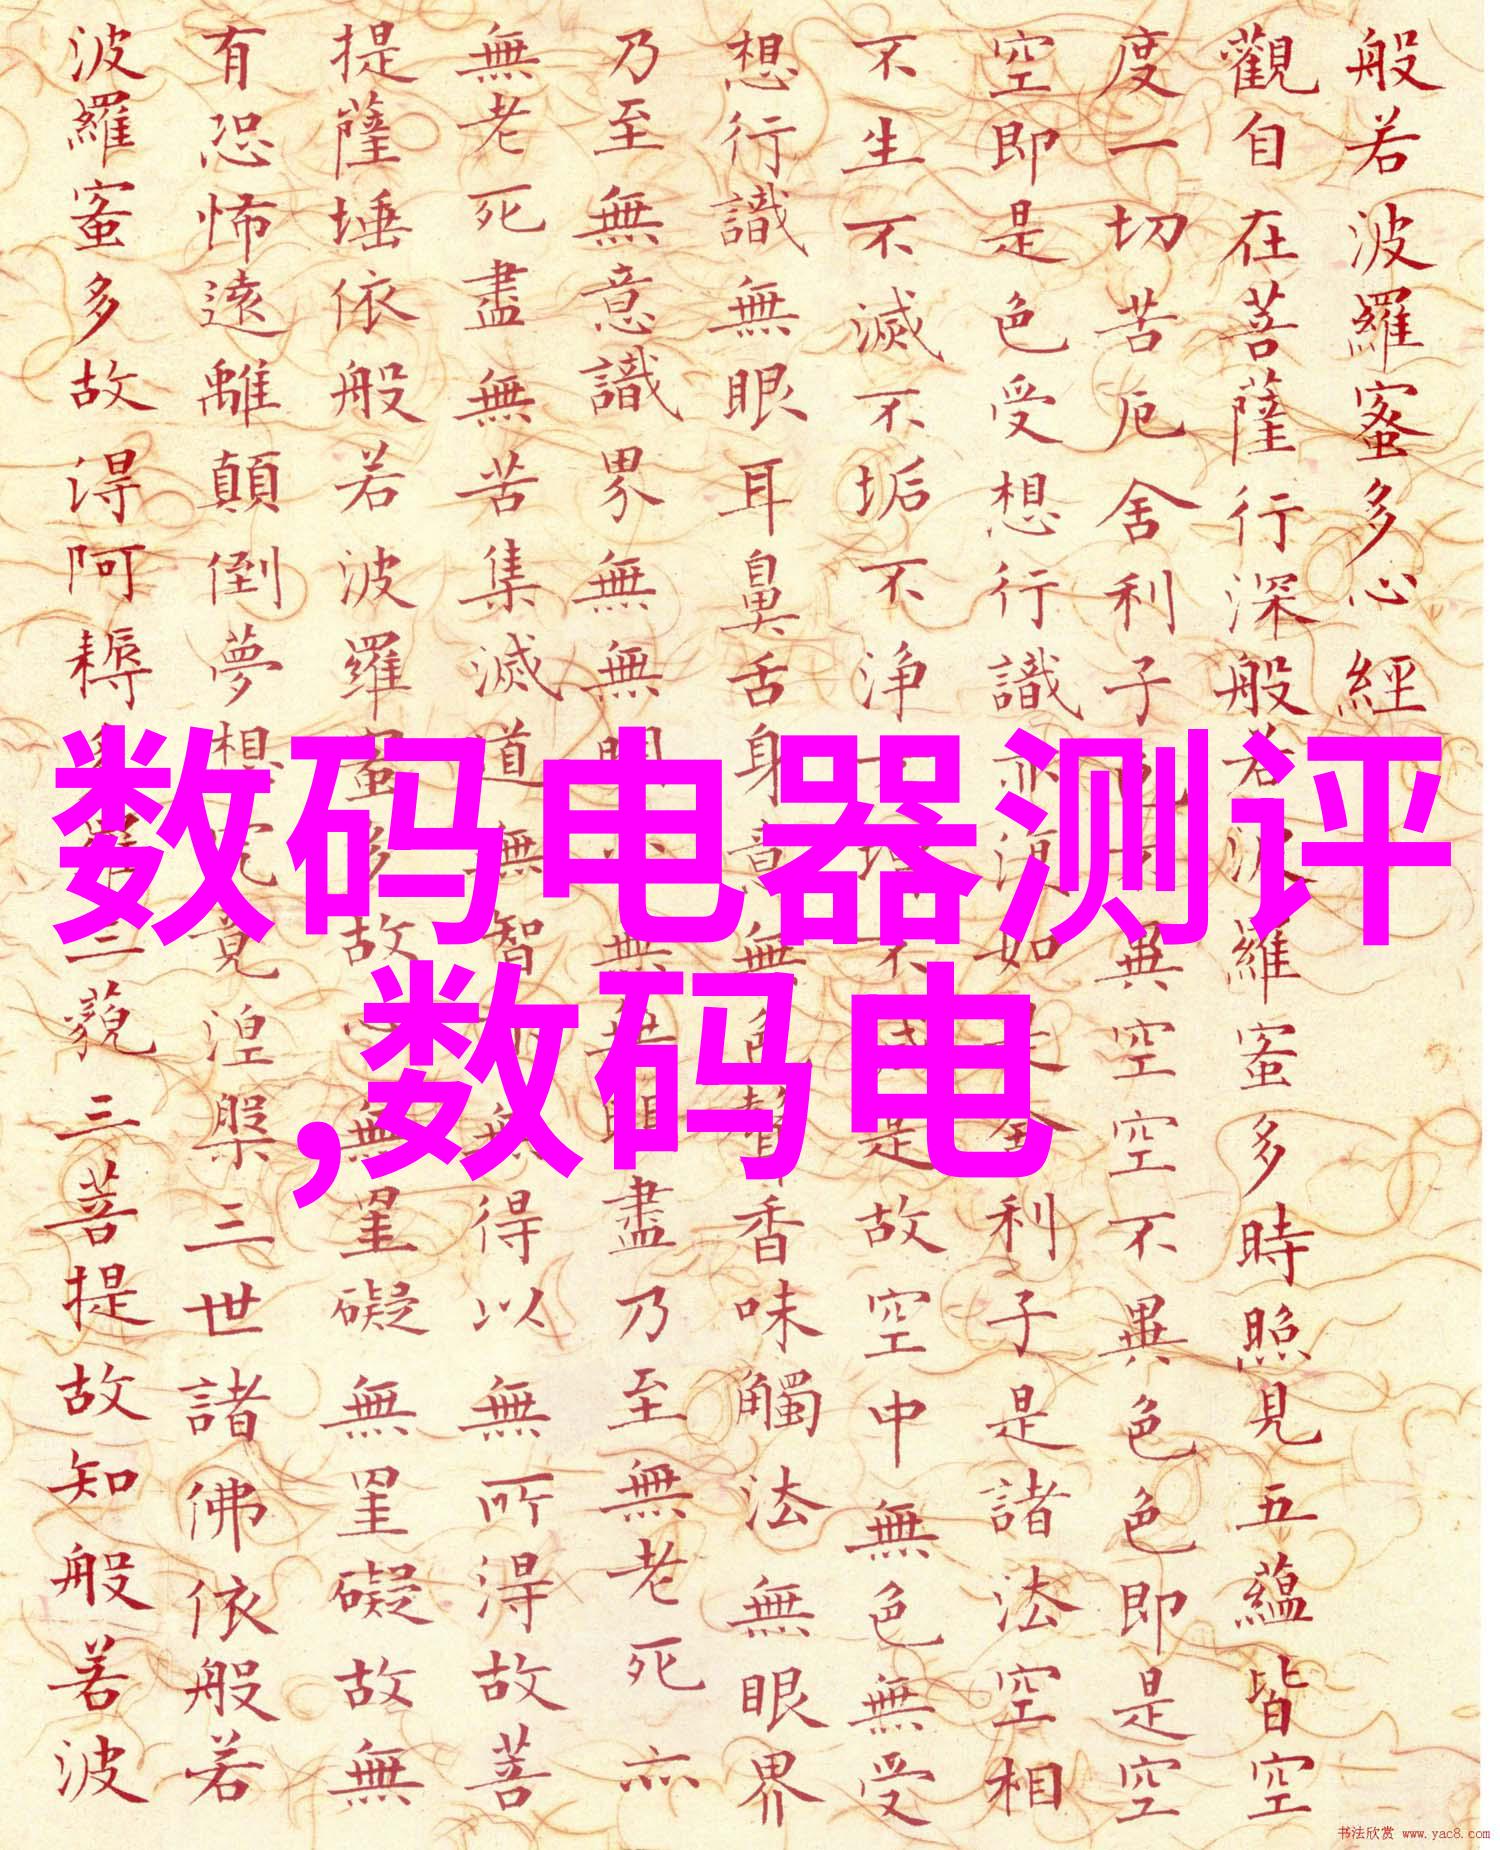 般若波羅蜜多心經
觀自在菩薩行深般若波羅蜜多時照見五蘊皆空
度一切苦厄舍利子色不異空空不異色色即是空
空即是色受想行識亦復如是舍利子是諸法空相
不生不滅不垢不浄不增不減是故空中無色無受
想行識無眼耳鼻舌身意無色聲香味觸法無眼界
乃至無意識界無無明亦無無明盡乃至無老死亦
無老死盡無苦集滅道無智亦無得以無所得故菩
提薩埵依般若波羅蜜多故心無罣礙無罣礙故無
有恐怖遠離顛倒夢想究竟涅槃三世諸佛依般若
波羅蜜多故得阿耨多羅三藐三菩提故知般若波
数码电器测评
,数码电
书法欣赏 www.yac8.com